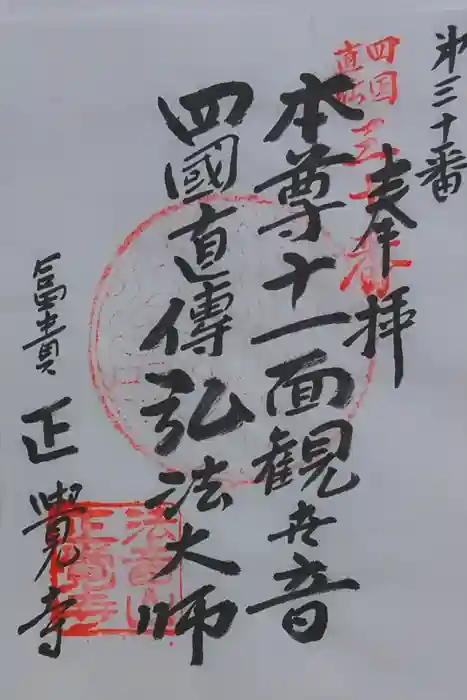 第三十番
奉拝
四国
直伝
三十番
本尊十一面観世音
四國直傳弘法大師
富貴
正覺寺